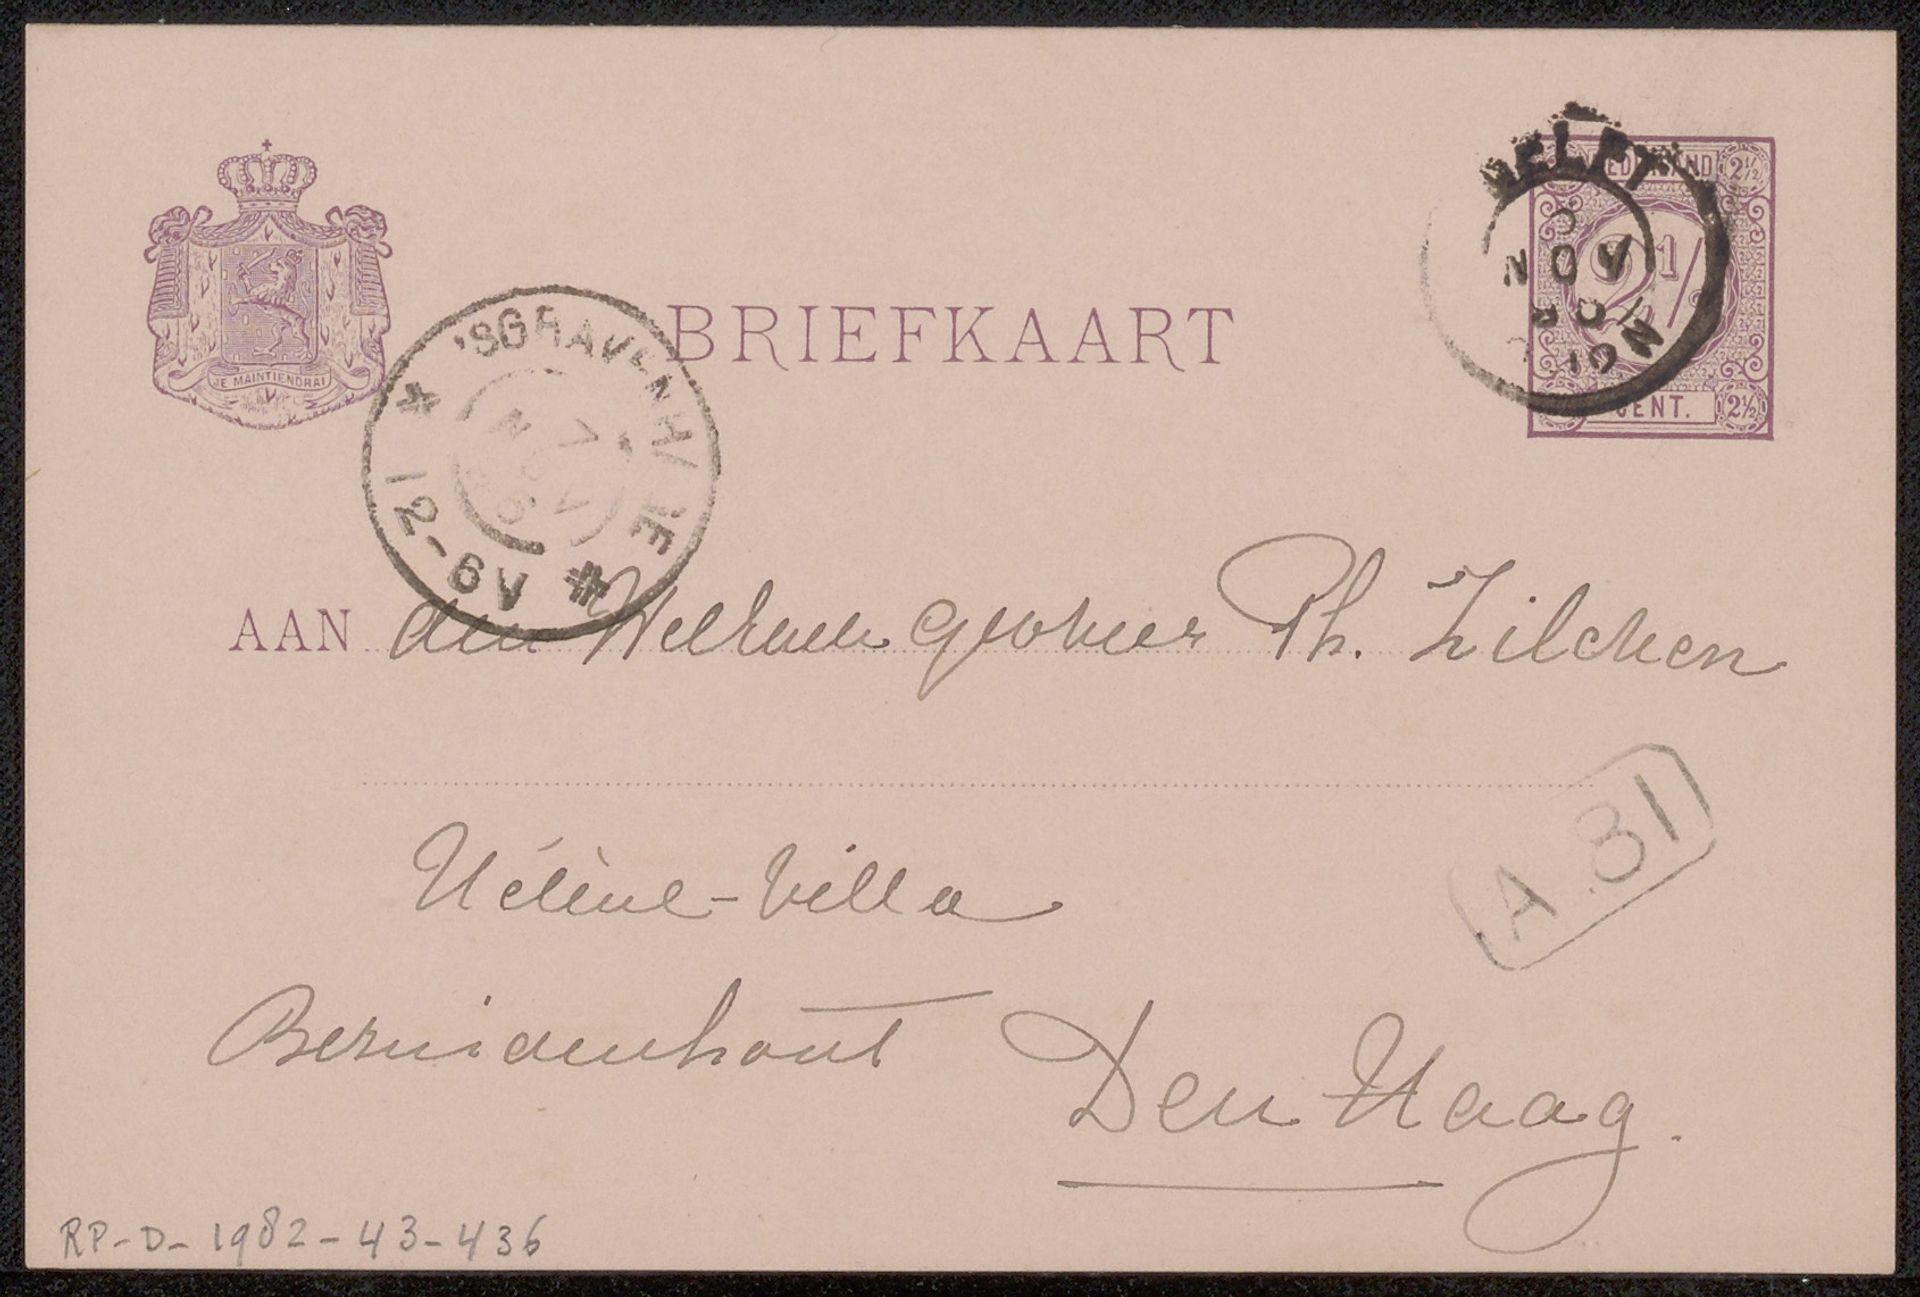 JE MAINTIENDRAI
BRIEFKAART
NEDERLAND 2½
2½
CENT. 2½
DELFT
NOV
10N
'SGRAVENHAGE
7
NOV
96
12-6V
AAN den WelEdelen Geboren Ph. Zilcken
Hélène-Villa
A.31
Bezuidenhout Den Haag.
RP-D-1982-43-436